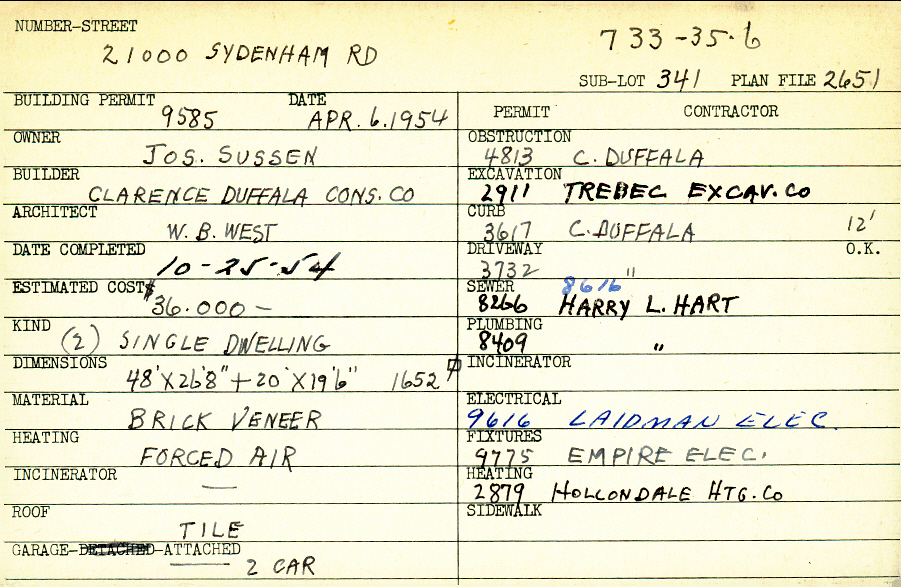 NUMBER-STREET
21000 SYDENHAM RD
733-35-6
SUB-LOT 341 PLAN FILE 2651
BUILDING PERMIT DATE
9585 APR. 6. 1954
OWNER
JOS. SUSSEN
BUILDER
CLARENCE DUFFALA CONS. CO
ARCHITECT
W. B. WEST
DATE COMPLETED
10-25-54
ESTIMATED COST
$36.000 —
KIND
(2) SINGLE DWELLING
DIMENSIONS
48'X26'8"+20'X19'6" 1652
MATERIAL
BRICK VENEER
HEATING
FORCED AIR
INCINERATOR
—
ROOF
TILE
GARAGE-DETACHED-ATTACHED
2 CAR
PERMIT CONTRACTOR
OBSTRUCTION
4813 C. DUFFALA
EXCAVATION
2911 TREBEC EXCAV. CO
CURB
3617 C. DUFFALA 12'
DRIVEWAY O.K.
3732 "
SEWER 8616
8266 HARRY L. HART
PLUMBING
8409 "
INCINERATOR
ELECTRICAL
9616 LAIDMAN ELEC.
FIXTURES
9775 EMPIRE ELEC.
HEATING
2879 HOLLONDALE HTG. CO
SIDEWALK